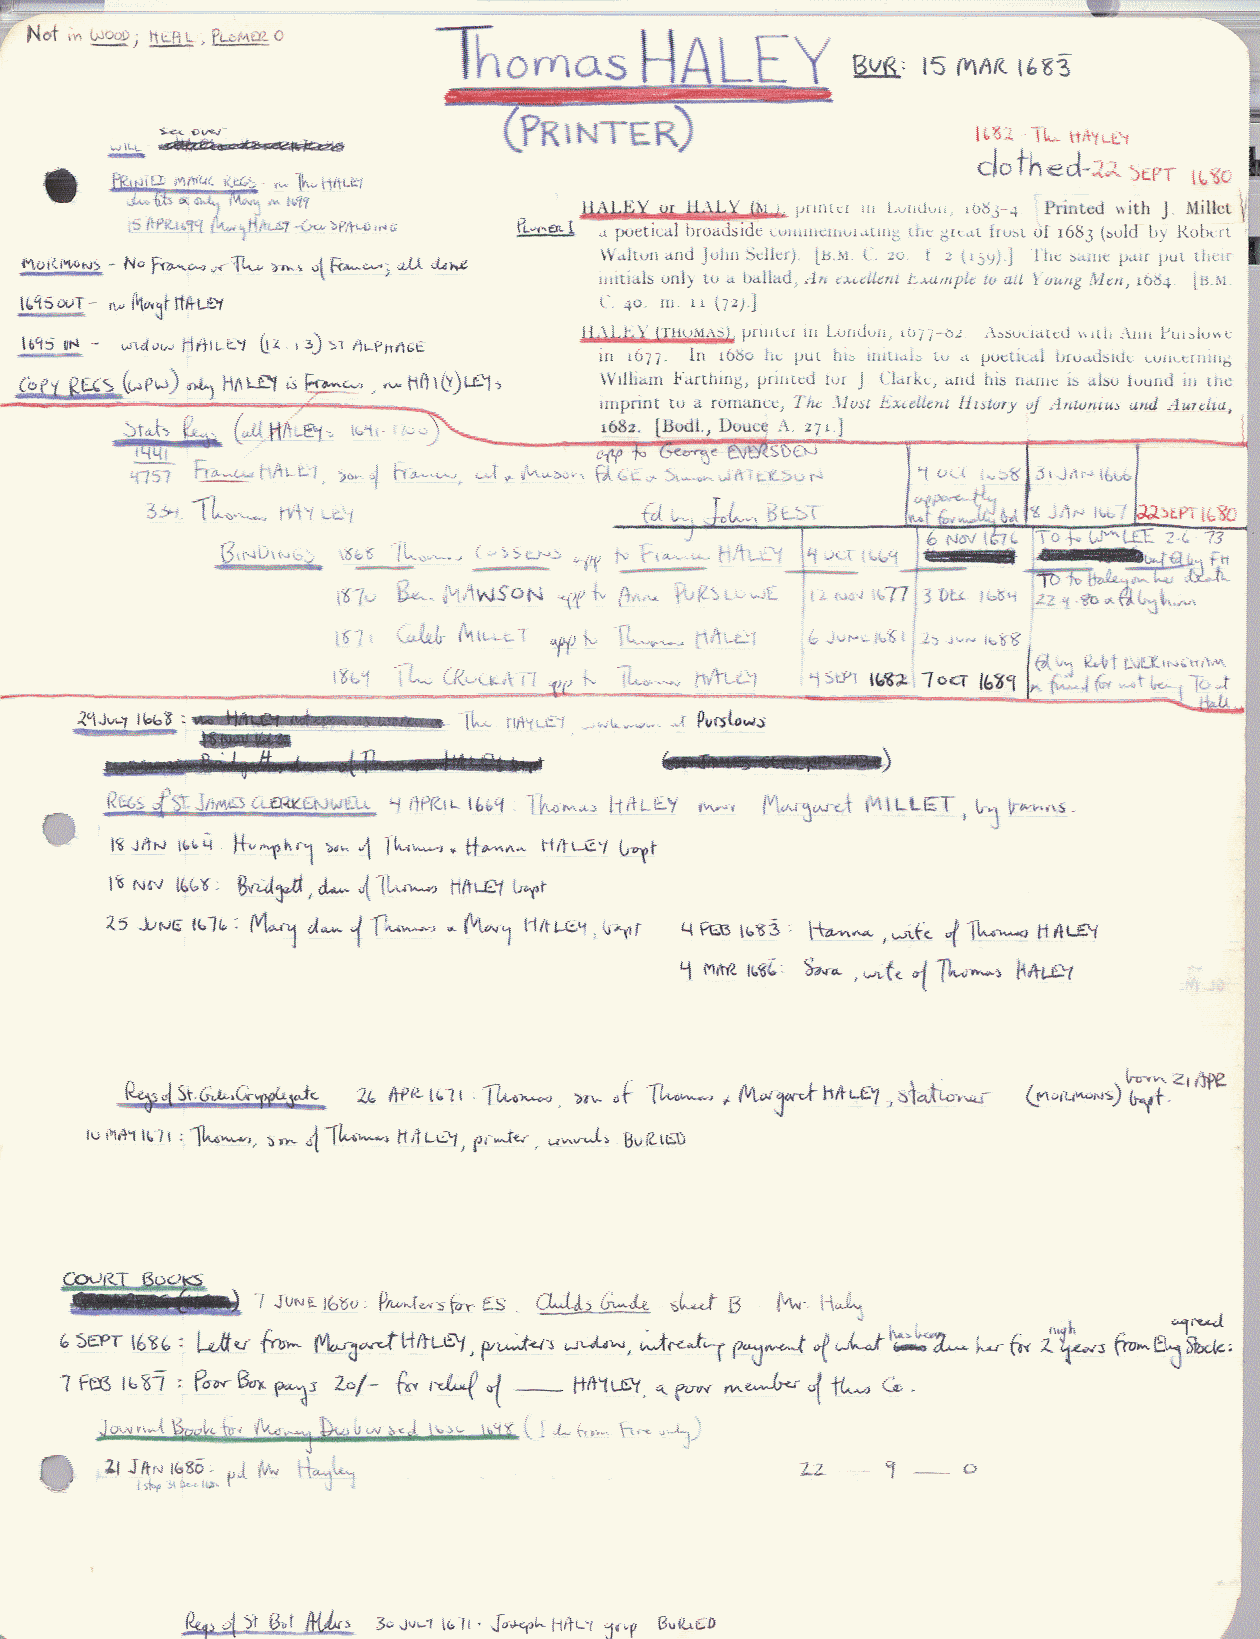 Not in WOOD; HEAL, PLOMER O
Thomas HALEY
BUR: 15 MAR 1683
(PRINTER)
see over
WILL
1682 - Tho HAYLEY
clothed - 22 SEPT 1680
PRINTED MARR REGS - no Tho HALEY
only Mary in 1699
15 APR 1699 Mary HALEY - Geo SPALDING
MORMONS - No Francis or Tho sons of Francis; all done
1695 OUT - no Margt HALEY
1695 IN - widow HAILEY (12.13) ST ALPHAGE
COPY REGS (WPW) only HALEY is Francis, no HAI(Y)LEYs
PLOMER I
HALEY or HALY (M.), printer in London, 1683-4 Printed with J. Millet
a poetical broadside commemorating the great frost of 1683 (sold by Robert
Walton and John Seller). [B.M. C. 20. f 2 (159).] The same pair put their
initials only to a ballad, An excellent Example to all Young Men, 1684. [B.M.
C. 40. m. 11 (72).]
HALEY (THOMAS), printer in London, 1677-82 Associated with Ann Purslowe
in 1677. In 1680 he put his initials to a poetical broadside concerning
William Farthing, printed for J Clarke, and his name is also found in the
imprint to a romance, The Most Excellent History of Antonius and Aurelia,
1682. [Bodl., Douce A. 271.]
Stats Regs (all HALEYs 1641-1700)
1441
4757 Francis HALEY, son of Francis, cit & Mason
app to George EVERSDEN
Fd GE & Simon WATERSON
4 OCT 1658
31 JAN 1666
334 Thomas HAYLEY
fd by John BEST
apparently
not formally bd
8 JAN 1667
22 SEPT 1680
BINDINGS 1868 Thomas COSSENS app to Francis HALEY
4 OCT 1669
6 NOV 1676
TO to Wm LEE 2.6.73
but fd by FH
1870 Ben. MAWSON app to Anne PURSLOWE
12 NOV 1677
3 DEC 1684
TO to Haley on her death
22.9.80 & fd by him
1871 Caleb MILLET app to Thomas HALEY
6 JUNE 1681
25 JUN 1688
1869 Tho CROCKATT app to Thomas HALEY
4 SEPT 1682
7 OCT 1689
fd by Robt EVERINGHAM
& fined for not being TO at
Hall
29 JULY 1668: Tho HAYLEY, workman at Purslows
REGS of ST. JAMES CLERKENWELL 4 APRIL 1669: Thomas HALEY marr Margaret MILLET, by banns.
18 JAN 1664: Humphry son of Thomas & Hanna HALEY bapt
18 NOV 1668: Bridgett, dau of Thomas HALEY bapt
25 JUNE 1676: Mary dau of Thomas & Mary HALEY, bapt
4 FEB 1683: Hanna, wife of Thomas HALEY
4 MAR 1686: Sara, wife of Thomas HALEY
Regs of St. Giles Cripplegate 26 APR 1671: Thomas, son of Thomas & Margaret HALEY, stationer (MORMONS) born 21 APR bapt.
10 MAY 1671: Thomas, son of Thomas HALEY, printer, BURIED
COURT BOOKS
7 JUNE 1680: Printers for ES. Childs Guide sheet B Mr. Haly
6 SEPT 1686: Letter from Margaret HALEY, printer's widow, intreating payment of what has been due her for 2 years from Eng Stock: agreed
7 FEB 1687: Poor Box pays 20/- for relief of —— HAYLEY, a poor member of this Co.
Journal Book for Money Disbursed 1650 1698 (I do from Fire only)
21 JAN 1680: pd Mr Hayley 22 — 9 — 0
Regs of St Bot Alders 30 JULY 1671: Joseph HALY BURIED